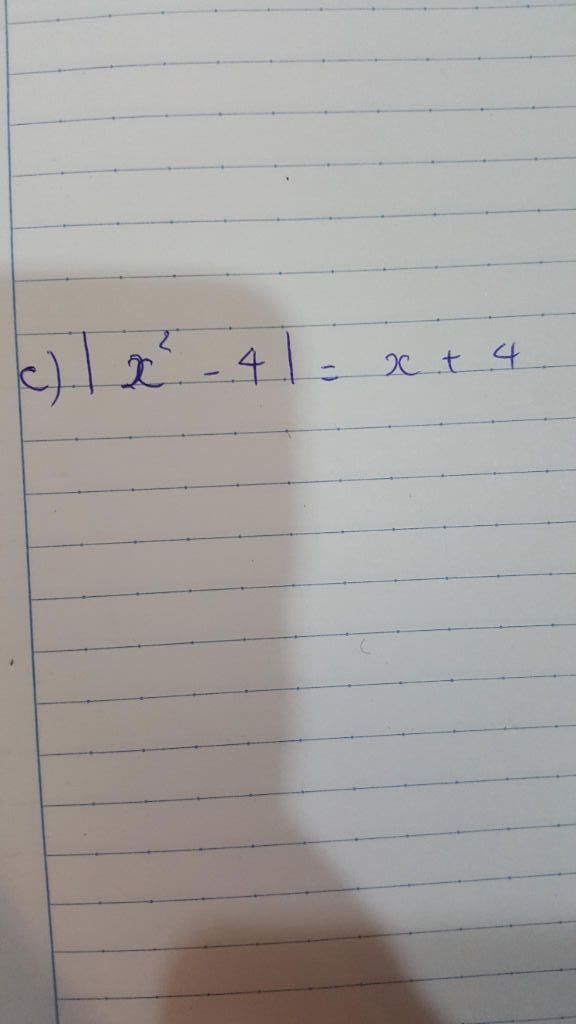 c) | x² - 4 | = x + 4